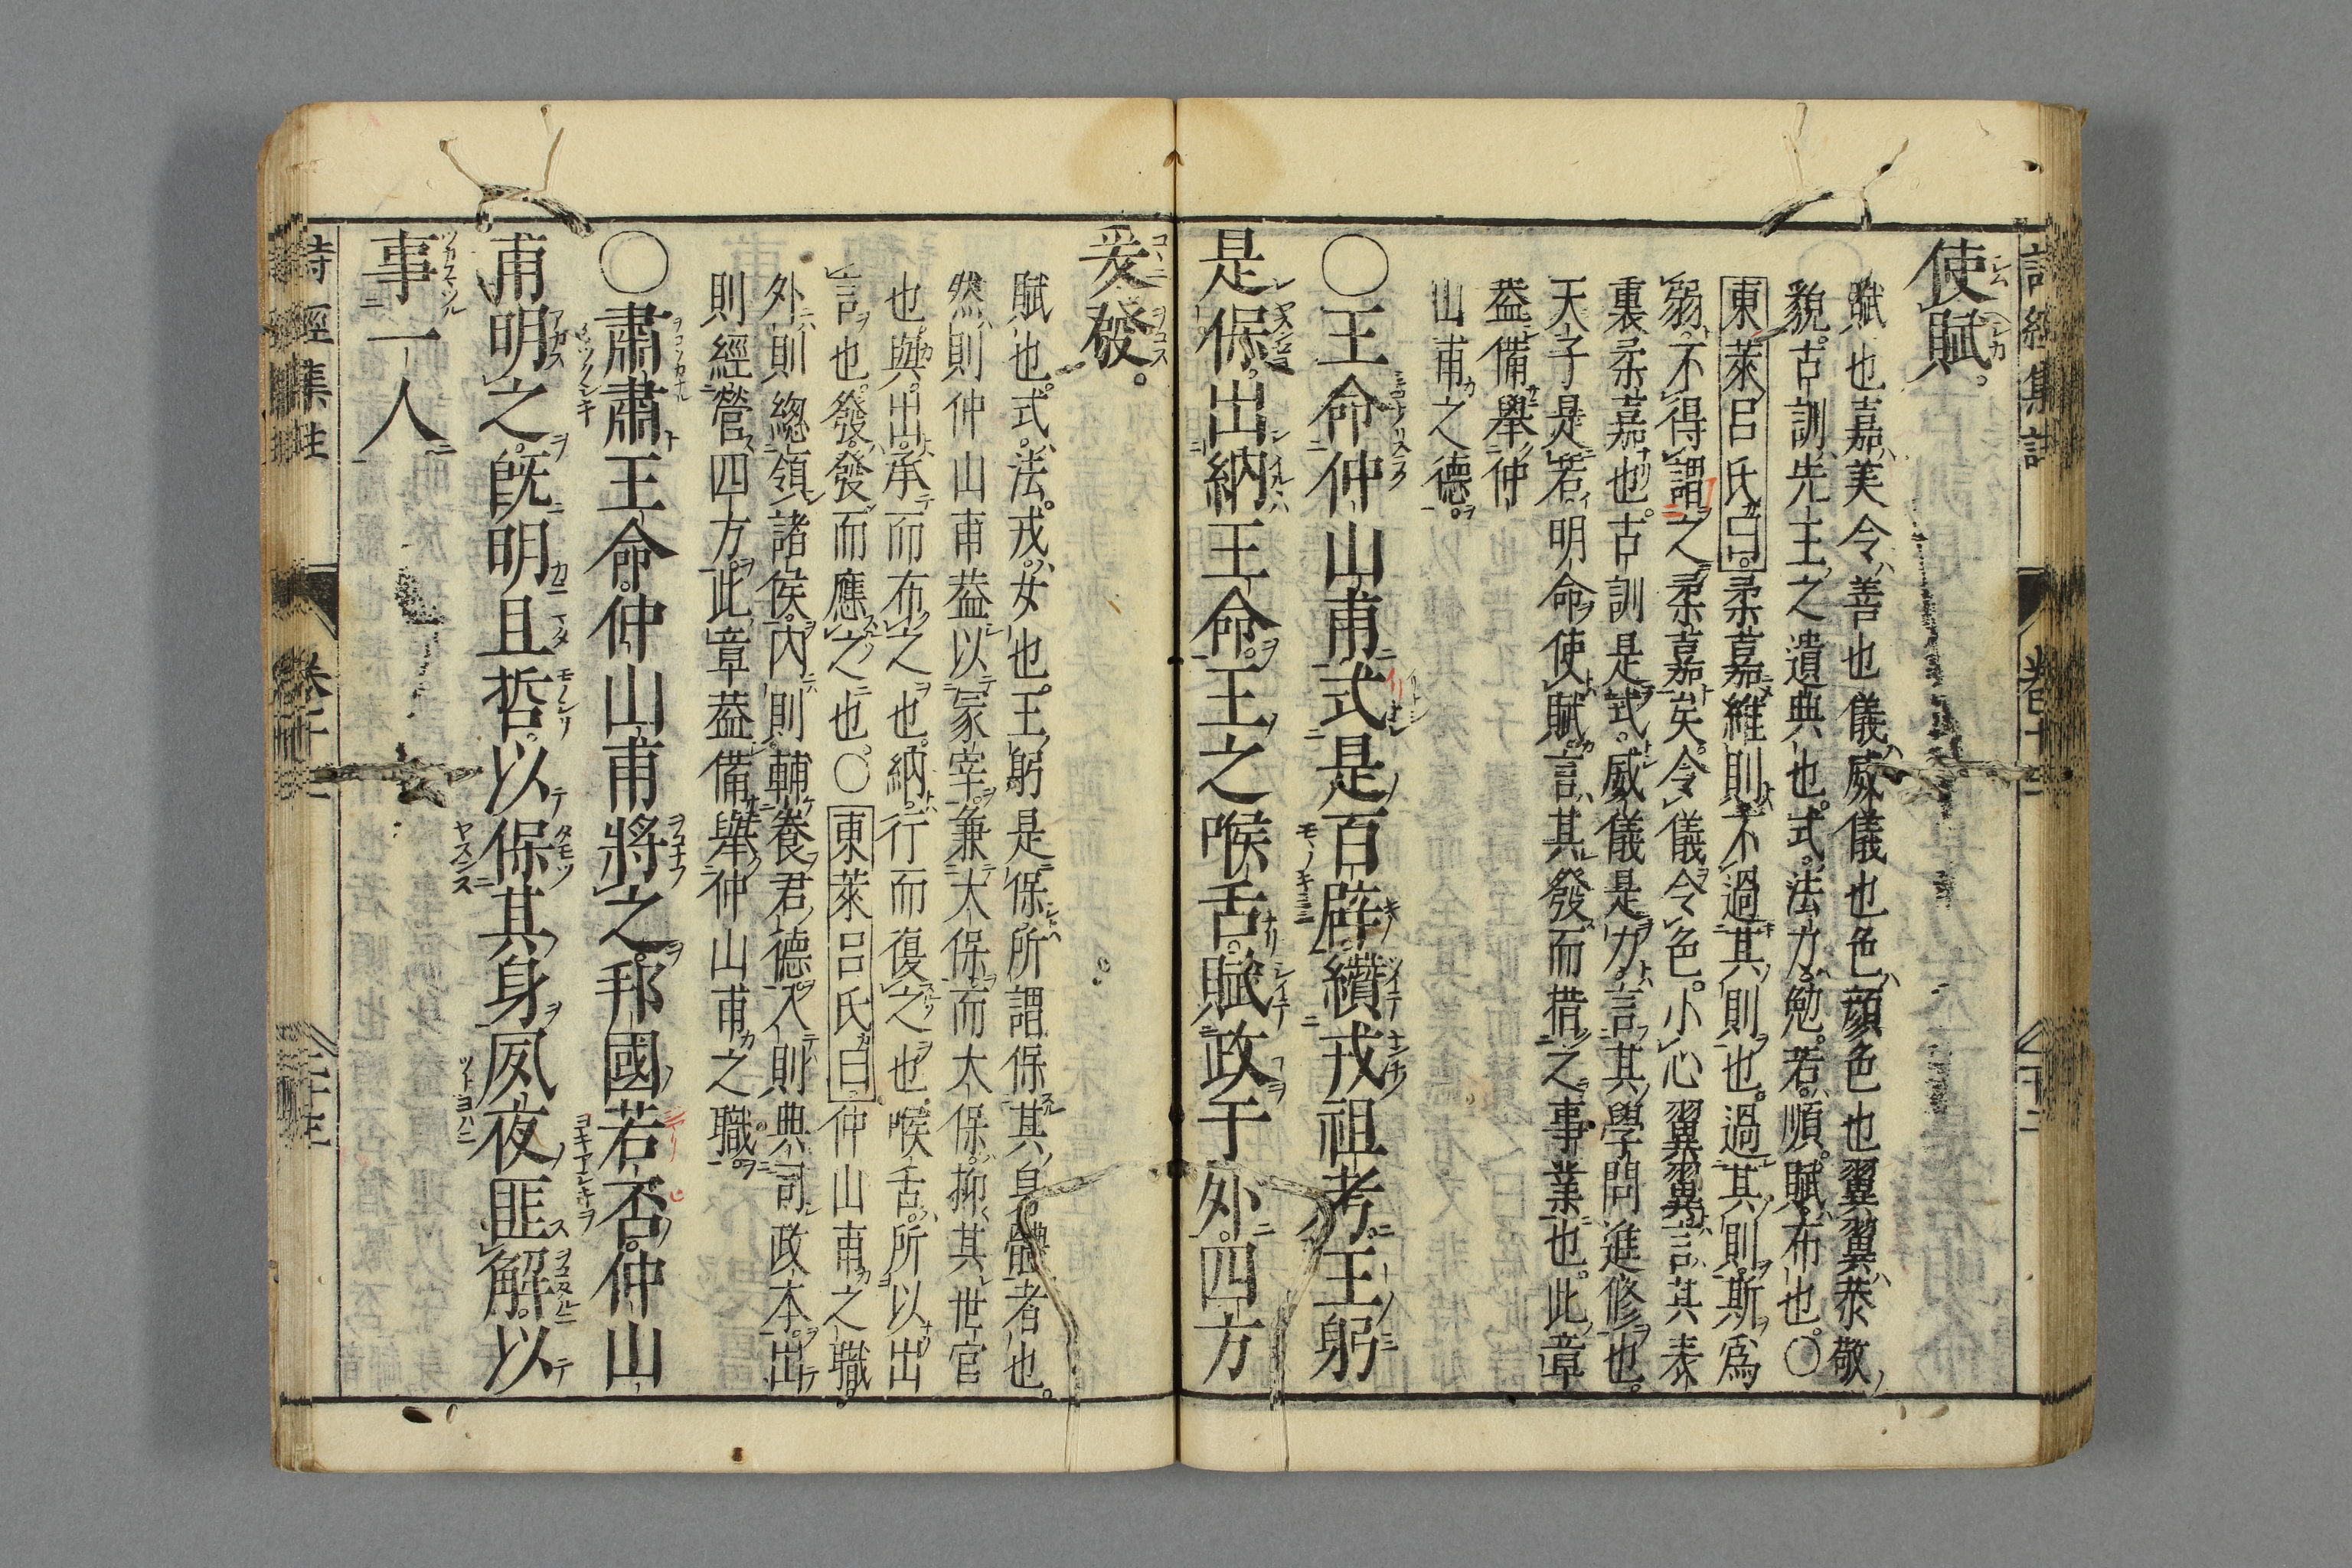 使賦
賦也嘉美令善也儀威儀也色顔色也翼翼恭敬
貌古訓先王之遺典也式法力勉若順賦布也○
東萊呂氏曰柔嘉維則不過其則也過其則斯爲
弱不得謂之柔嘉矣令儀令色小心翼翼言其表
裏柔嘉也古訓是式威儀是力言其學問進修也
天子是若明命使賦言其發而措之事業也此章
蓋備舉仲
山甫之德
○王命仲山甫式是百辟纉戎祖考王躬
是保出納王命王之喉舌賦政于外四方
爰發
賦也式法戎女也王躬是保所謂保其身體者也
然則仲山甫蓋以冢宰兼大保而大保抑其世官
也與出承而布之也納行而復之也喉舌所以出
言也發發而應之也○東萊呂氏曰仲山甫之職
外則總領諸侯內則輔養君德入則典司政本出
則經營四方此章蓋備舉仲山甫之職
○肅肅王命仲山甫將之邦國若否仲山
甫明之旣明且哲以保其身夙夜匪解以
事一人
詩經集註 卷十